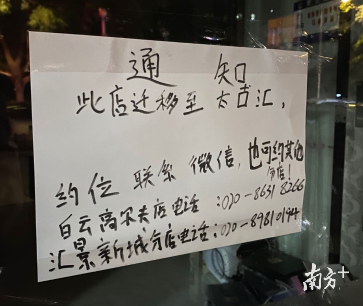 通 知
此店迁移至 太古汇，
约位 联系 微信，也可约其他
分店！
白云高尔夫店电话：020-86318266
汇景新城分店电话：020-89810144
南方+